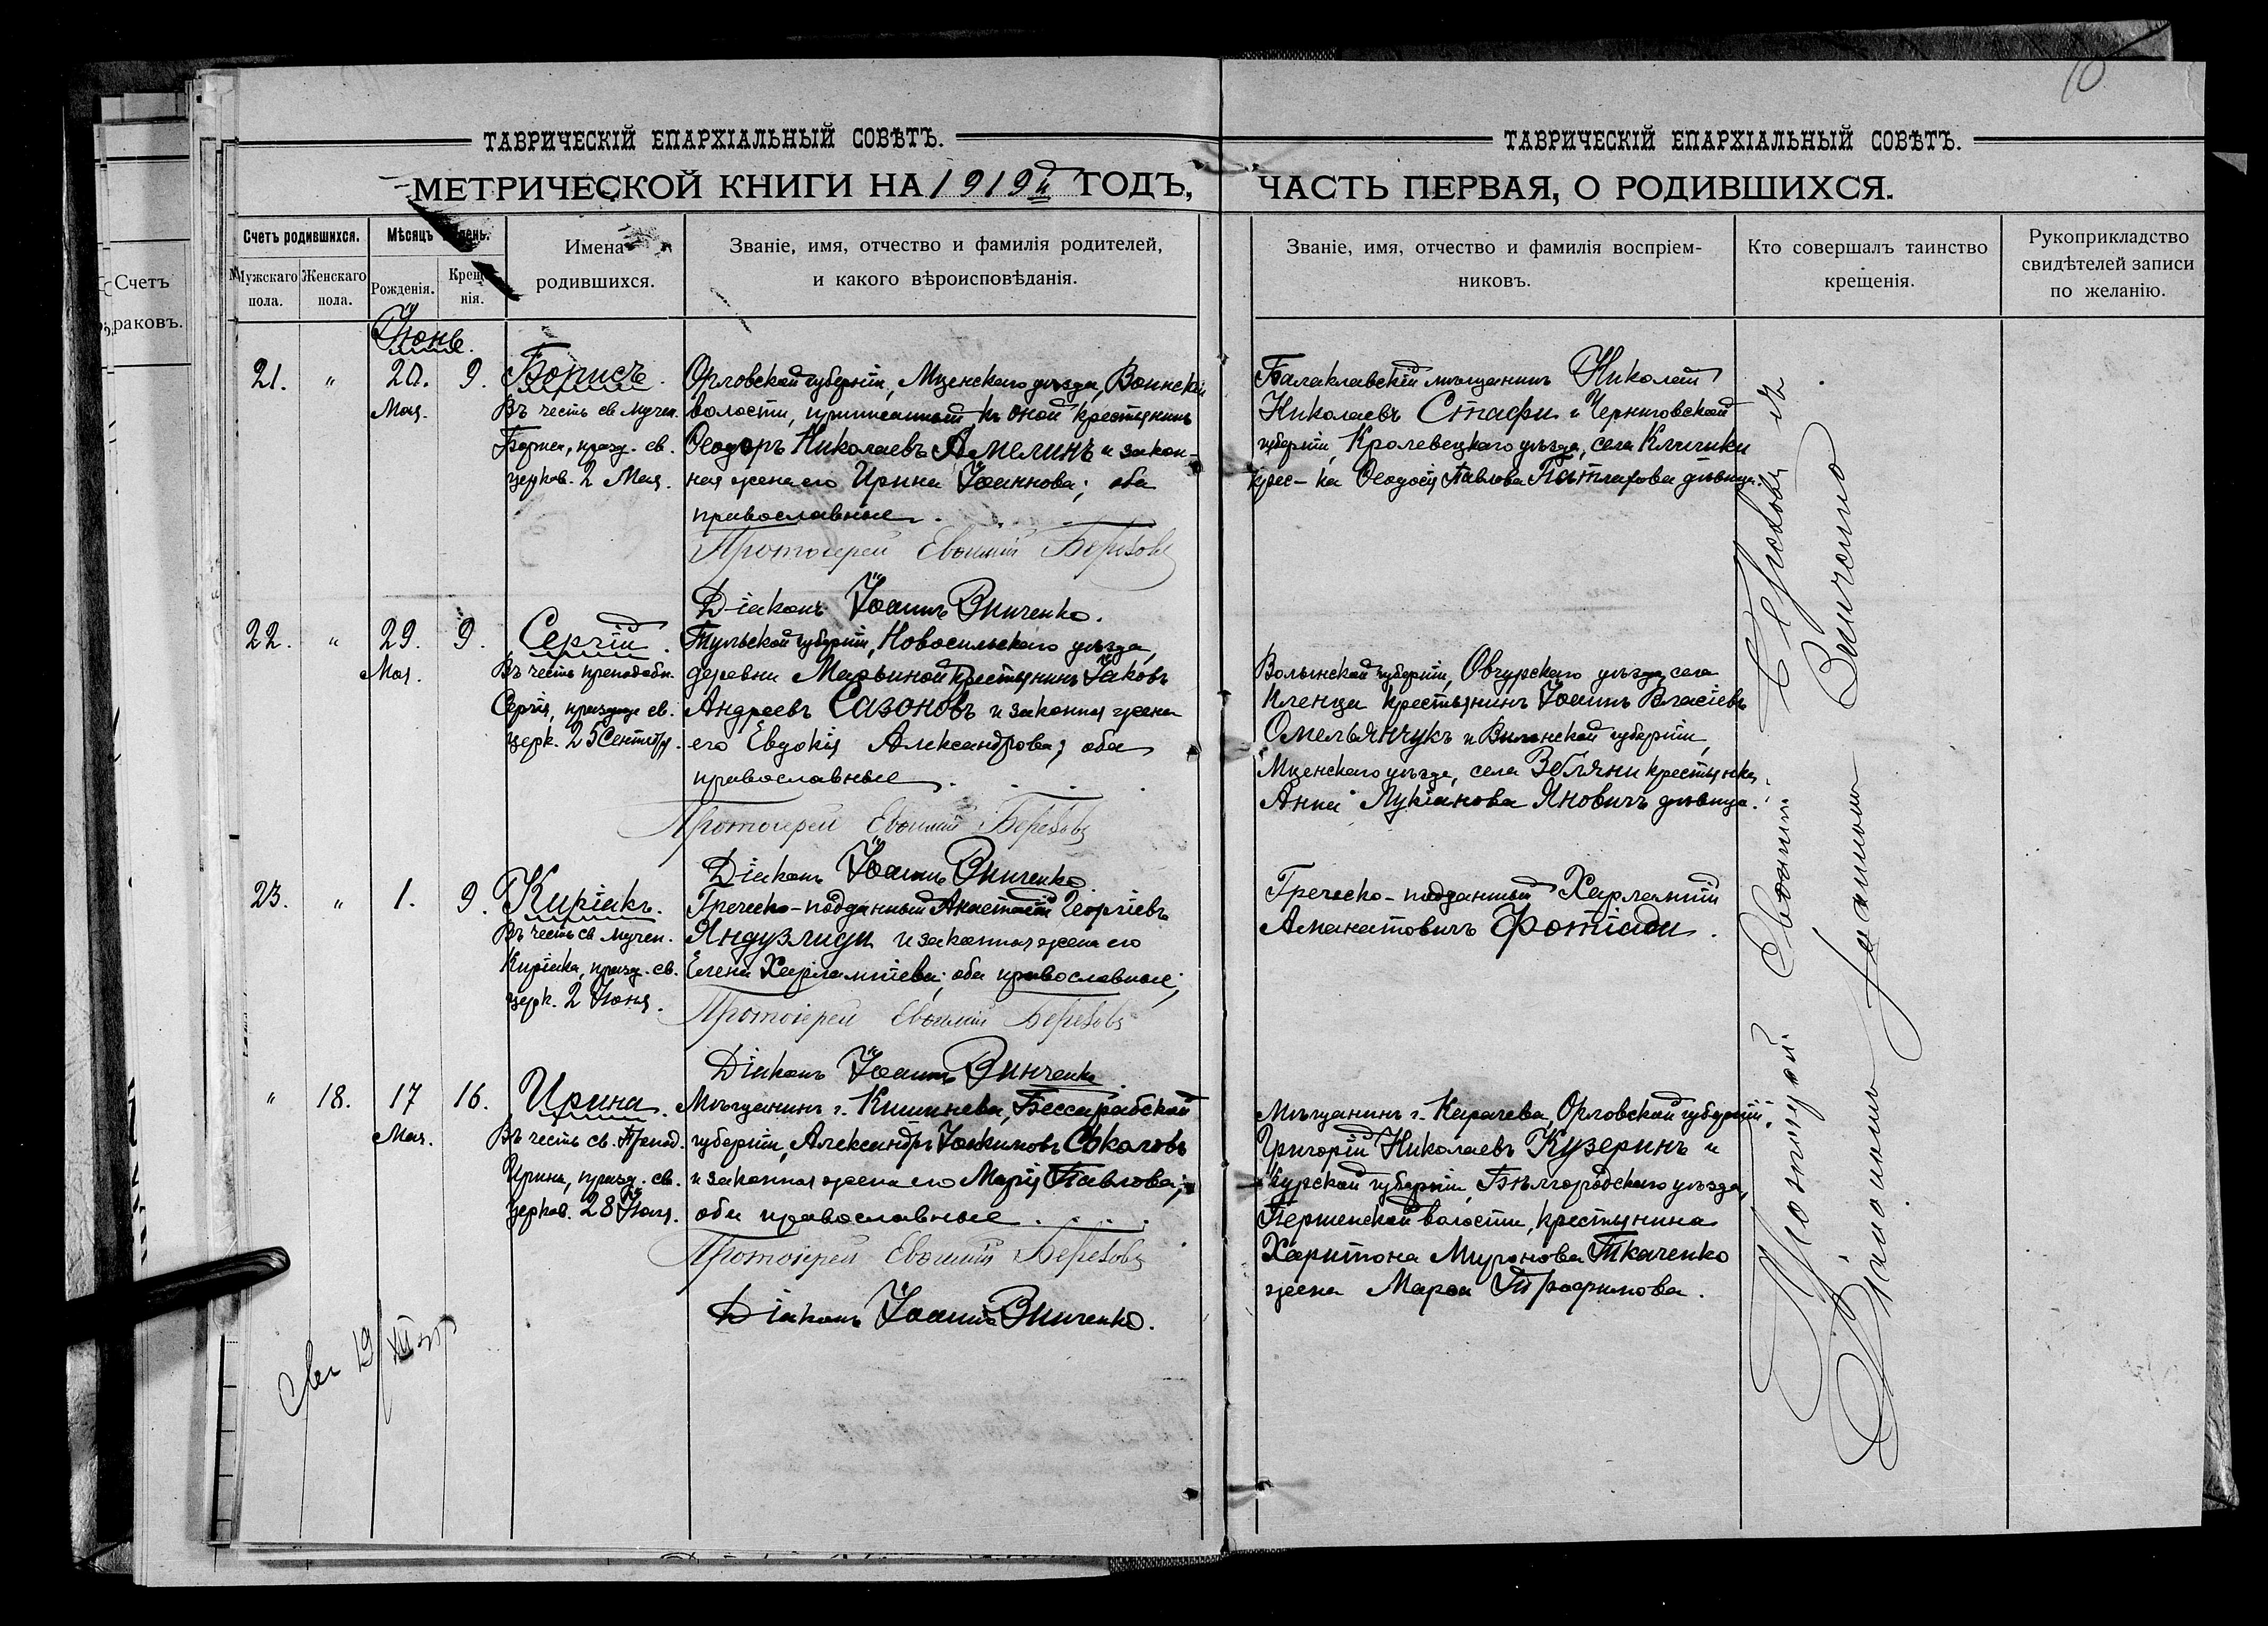 ТАВРИЧЕСКІЙ ЕПАРХІАЛЬНЫЙ СОВѢТЪ.
МЕТРИЧЕСКОЙ КНИГИ НА 1919й ГОДЪ,
Счетъ родившихся.
Мужскаго пола.
Женскаго пола.
Мѣсяцъ день.
Рожденія.
Креще-
нія.
Имена
родившихся.
Званіе, имя, отчество и фамилія родителей,
и какого вѣроисповѣданія.
Іюнь.
21. " 20. 9.
Мая.
Борисъ.
Въ честь св. мучен.
Бориса, празд. св.
церков. 2 Мая.
Орловской губерніи, Мценскаго уѣзда, Воинской
волости, приписанный къ оной крестьянинъ
Ѳеодоръ Николаевъ Амелинъ и закон-
ная жена его Ирина Іоаннова; оба
православные.
Протоіерей Евѳимій Березовъ
Діаконъ Іоаннъ Винченко.
22. " 29. 9.
Мая.
Сергій.
Въ честь преподобн.
Сергія, празднуе св.
церк. 25 Сентябр.
Тульской губерніи, Новосильскаго уѣзда,
деревни Марьиной крестьянинъ Іаковъ
Андреевъ Сазоновъ и законная жена
его Евдокія Александрова; оба
православные.
Протоіерей Евѳимій Березовъ
Діаконъ Іоаннъ Винченко
23. " 1. 9.
Киріакъ.
Въ честь св. мучен.
Киріака, празд. св.
церк. 2 Іюня.
Греческо-подданный Анастасій Георгіевъ
Яндузлиди и законная жена его
Елена Харлампіева; оба православные;
Протоіерей Евѳимій Березовъ
Діаконъ Іоаннъ Винченко.
" 18. 17 16.
Мая.
Ирина.
Въ честь св. Препод.
Ирины, празд. св.
церков. 28 Іюля.
Мѣщанинъ г. Кишинева, Бессарабской
губерніи, Александръ Іоакимовъ Соколовъ
и законная жена его Марія Павлова;
оба православные.
Протоіерей Евѳимій Березовъ
Діаконъ Іоаннъ Винченко.
19/XII
ТАВРИЧЕСКІЙ ЕПАРХІАЛЬНЫЙ СОВѢТЪ.
ЧАСТЬ ПЕРВАЯ, О РОДИВШИХСЯ.
Званіе, имя, отчество и фамилія воспріем-
никовъ.
Кто совершалъ таинство
крещенія.
Рукоприкладство
свидѣтелей записи
по желанію.
Балаклавскій мѣщанинъ Николай
Николаевъ Стафи и Черниговской
губерніи, Кролевецкаго уѣзда, села Клишки
крес-ка Ѳеодосія Павлова девица.
Волынской губерніи, Овручскаго уѣзда, села
крестьянинъ Іоаннъ Власіевъ
Омельянчукъ и Виленской губерніи,
уѣзда, села крестьянка
Анна Лукіанова Яновичъ дѣвица.
Греческо-подданный Харлампій
Аманатовичъ Фотіади.
Мѣщанинъ г. Карачева, Орловской губерніи,
Григорій Николаевъ Кузеринъ и
Курской губерніи, Бѣлгородскаго уѣзда,
волости, крестьянина
Харитона Миронова Ткаченко
жена Марѳа Трофимова.
Протоіерей Евѳимій Березовъ съ
Діакономъ Іоанномъ Винченко
Счетъ
раковъ.